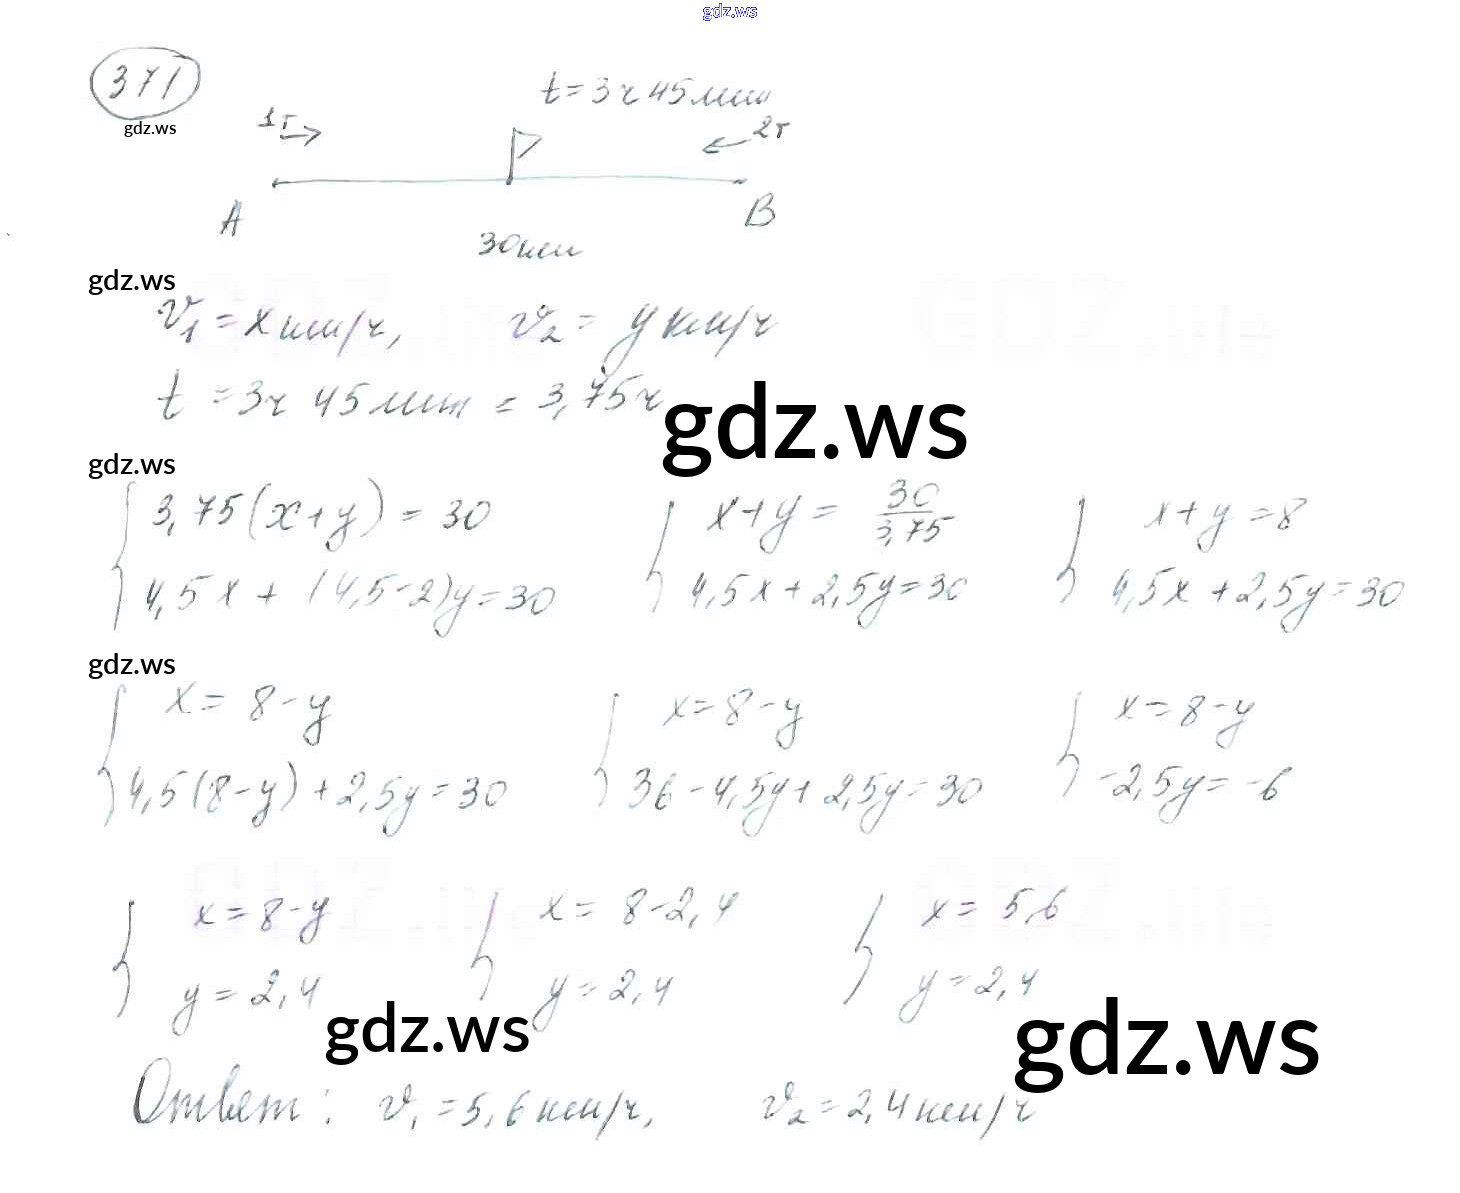 gdz.ws
371
gdz.ws
t = 3ч 45 мин
1т
2т
A
B
30 км
gdz.ws
v₁ = x км/ч, v₂ = y км/ч
t = 3ч 45 мин = 3,75 ч
gdz.ws
gdz.ws
3,75(x+y) = 30
x+y = 30/3,75
x+y = 8
4,5x + (4,5-2)y = 30
4,5x + 2,5y = 30
4,5x + 2,5y = 30
gdz.ws
x = 8-y
x = 8-y
x = 8-y
4,5(8-y) + 2,5y = 30
36 - 4,5y + 2,5y = 30
-2,5y = -6
x = 8-y
x = 8-2,4
x = 5,6
y = 2,4
y = 2,4
y = 2,4
gdz.ws
gdz.ws
Ответ: v₁ = 5,6 км/ч, v₂ = 2,4 км/ч